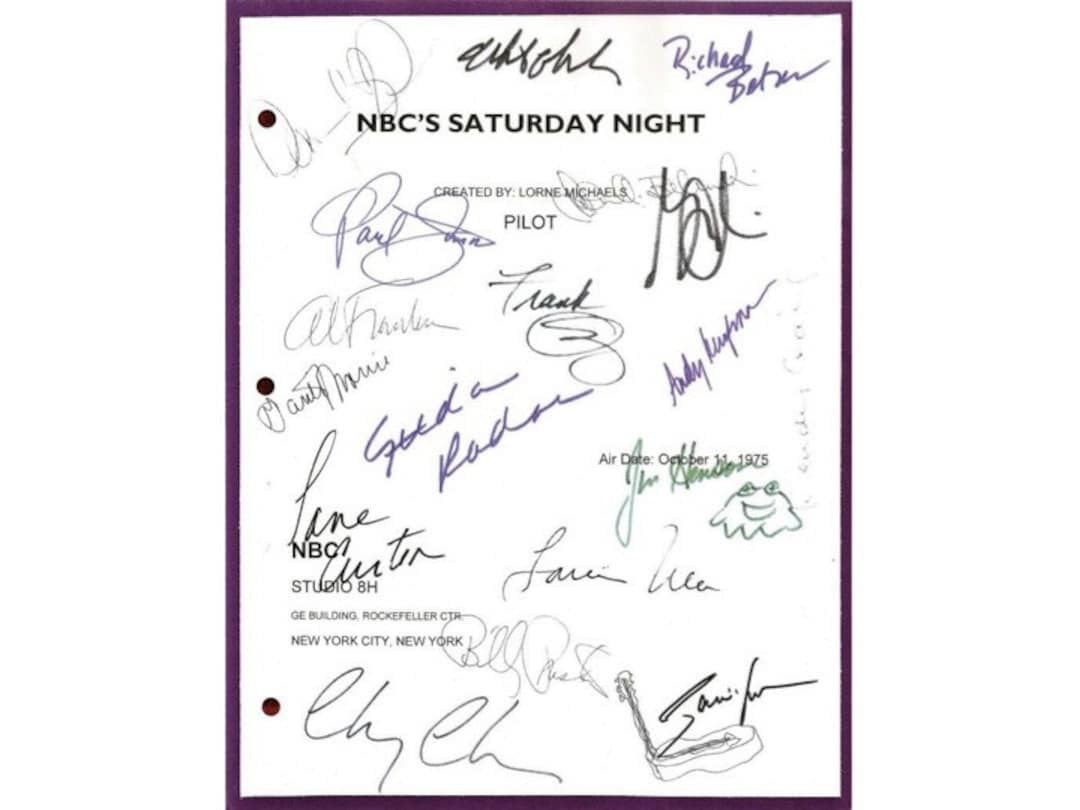 Richard
Belzer
NBC'S SATURDAY NIGHT
CREATED BY: LORNE MICHAELS
PILOT
Paul Simon
Frank
Al Franken
Garrett Morris
Andy Kaufman
Gilda
Radner
Air Date: October 11, 1975
Jim Henson
Jane
Curtin
NBC
STUDIO 8H
Laraine New
GE BUILDING, ROCKEFELLER CTR.
NEW YORK CITY, NEW YORK
Billy Preston
Chevy Chase
Janis Ian